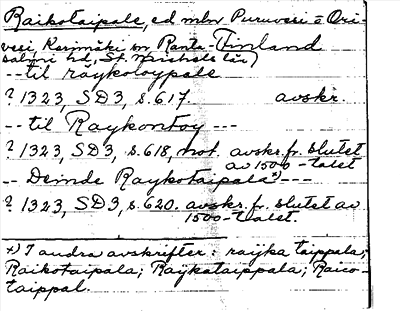 Raikotaipale, ed mln Puruvesi o Ori-
vesi, Kerimäki sn Ranta- Finland
salmi hd, St. Michels län)
--til raykoloypale
? 1323, SD3, s.617. avskr.
--til Raykontoy ---
? 1323, SD3, s.618, not. avskr. fr. slutet
av 1500-talet
-- Deinde Raykotaipala*)---
? 1323, SD3, s.620. avskr. fr. slutet av
1500-talet.
*) I andra avskrifter: raijka taippala;
Raikotaipala; Raijkataippala; Raico-
taippal.